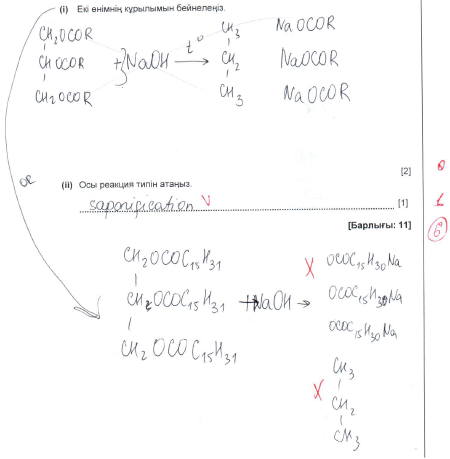 (i) Екі өнімнің құрылымын бейнелеңіз.
CH₂OCOR CH₃ NaOCOR
CHOCOR +3NaOH t° → CH₂ NaOCOR
CH₂OCOR CH₃ NaOCOR
[2] 0
OR
(ii) Осы реакция типін атаңыз.
saponification [1] 1
[Барлығы: 11] 6
CH₂OCOC₁₅H₃₁ OCOC₁₅H₃₀Na
CH₂OCOC₁₅H₃₁ + NaOH → OCOC₁₅H₃₀Na
CH₂OCOC₁₅H₃₁ OCOC₁₅H₃₀Na
CH₃
CH₂
CH₃